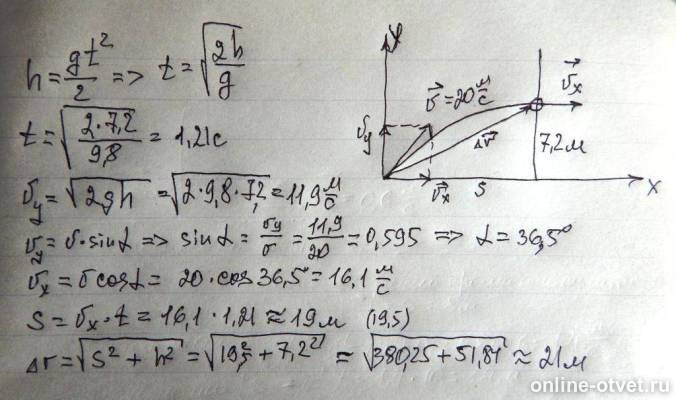 h = gt²/2 => t = √(2h/g)
t = √(2·7,2/9,8) = 1,21с
υy = √2gh = √2·9,8·7,2 = 11,9 м/с
υy = υ·sinα => sinα = υy/υ = 11,9/20 = 0,595 => α = 36,5°
υx = υcosα = 20·cos36,5° = 16,1 м/с
S = υx·t = 16,1·1,21 ≈ 19м (19,5)
Δr = √S² + h² = √19,5² + 7,2² ≈ √380,25 + 51,84 ≈ 21м
y
υ = 20 м/с
υx
υy
Δr
7,2м
υx
S
x
online-otvet.ru